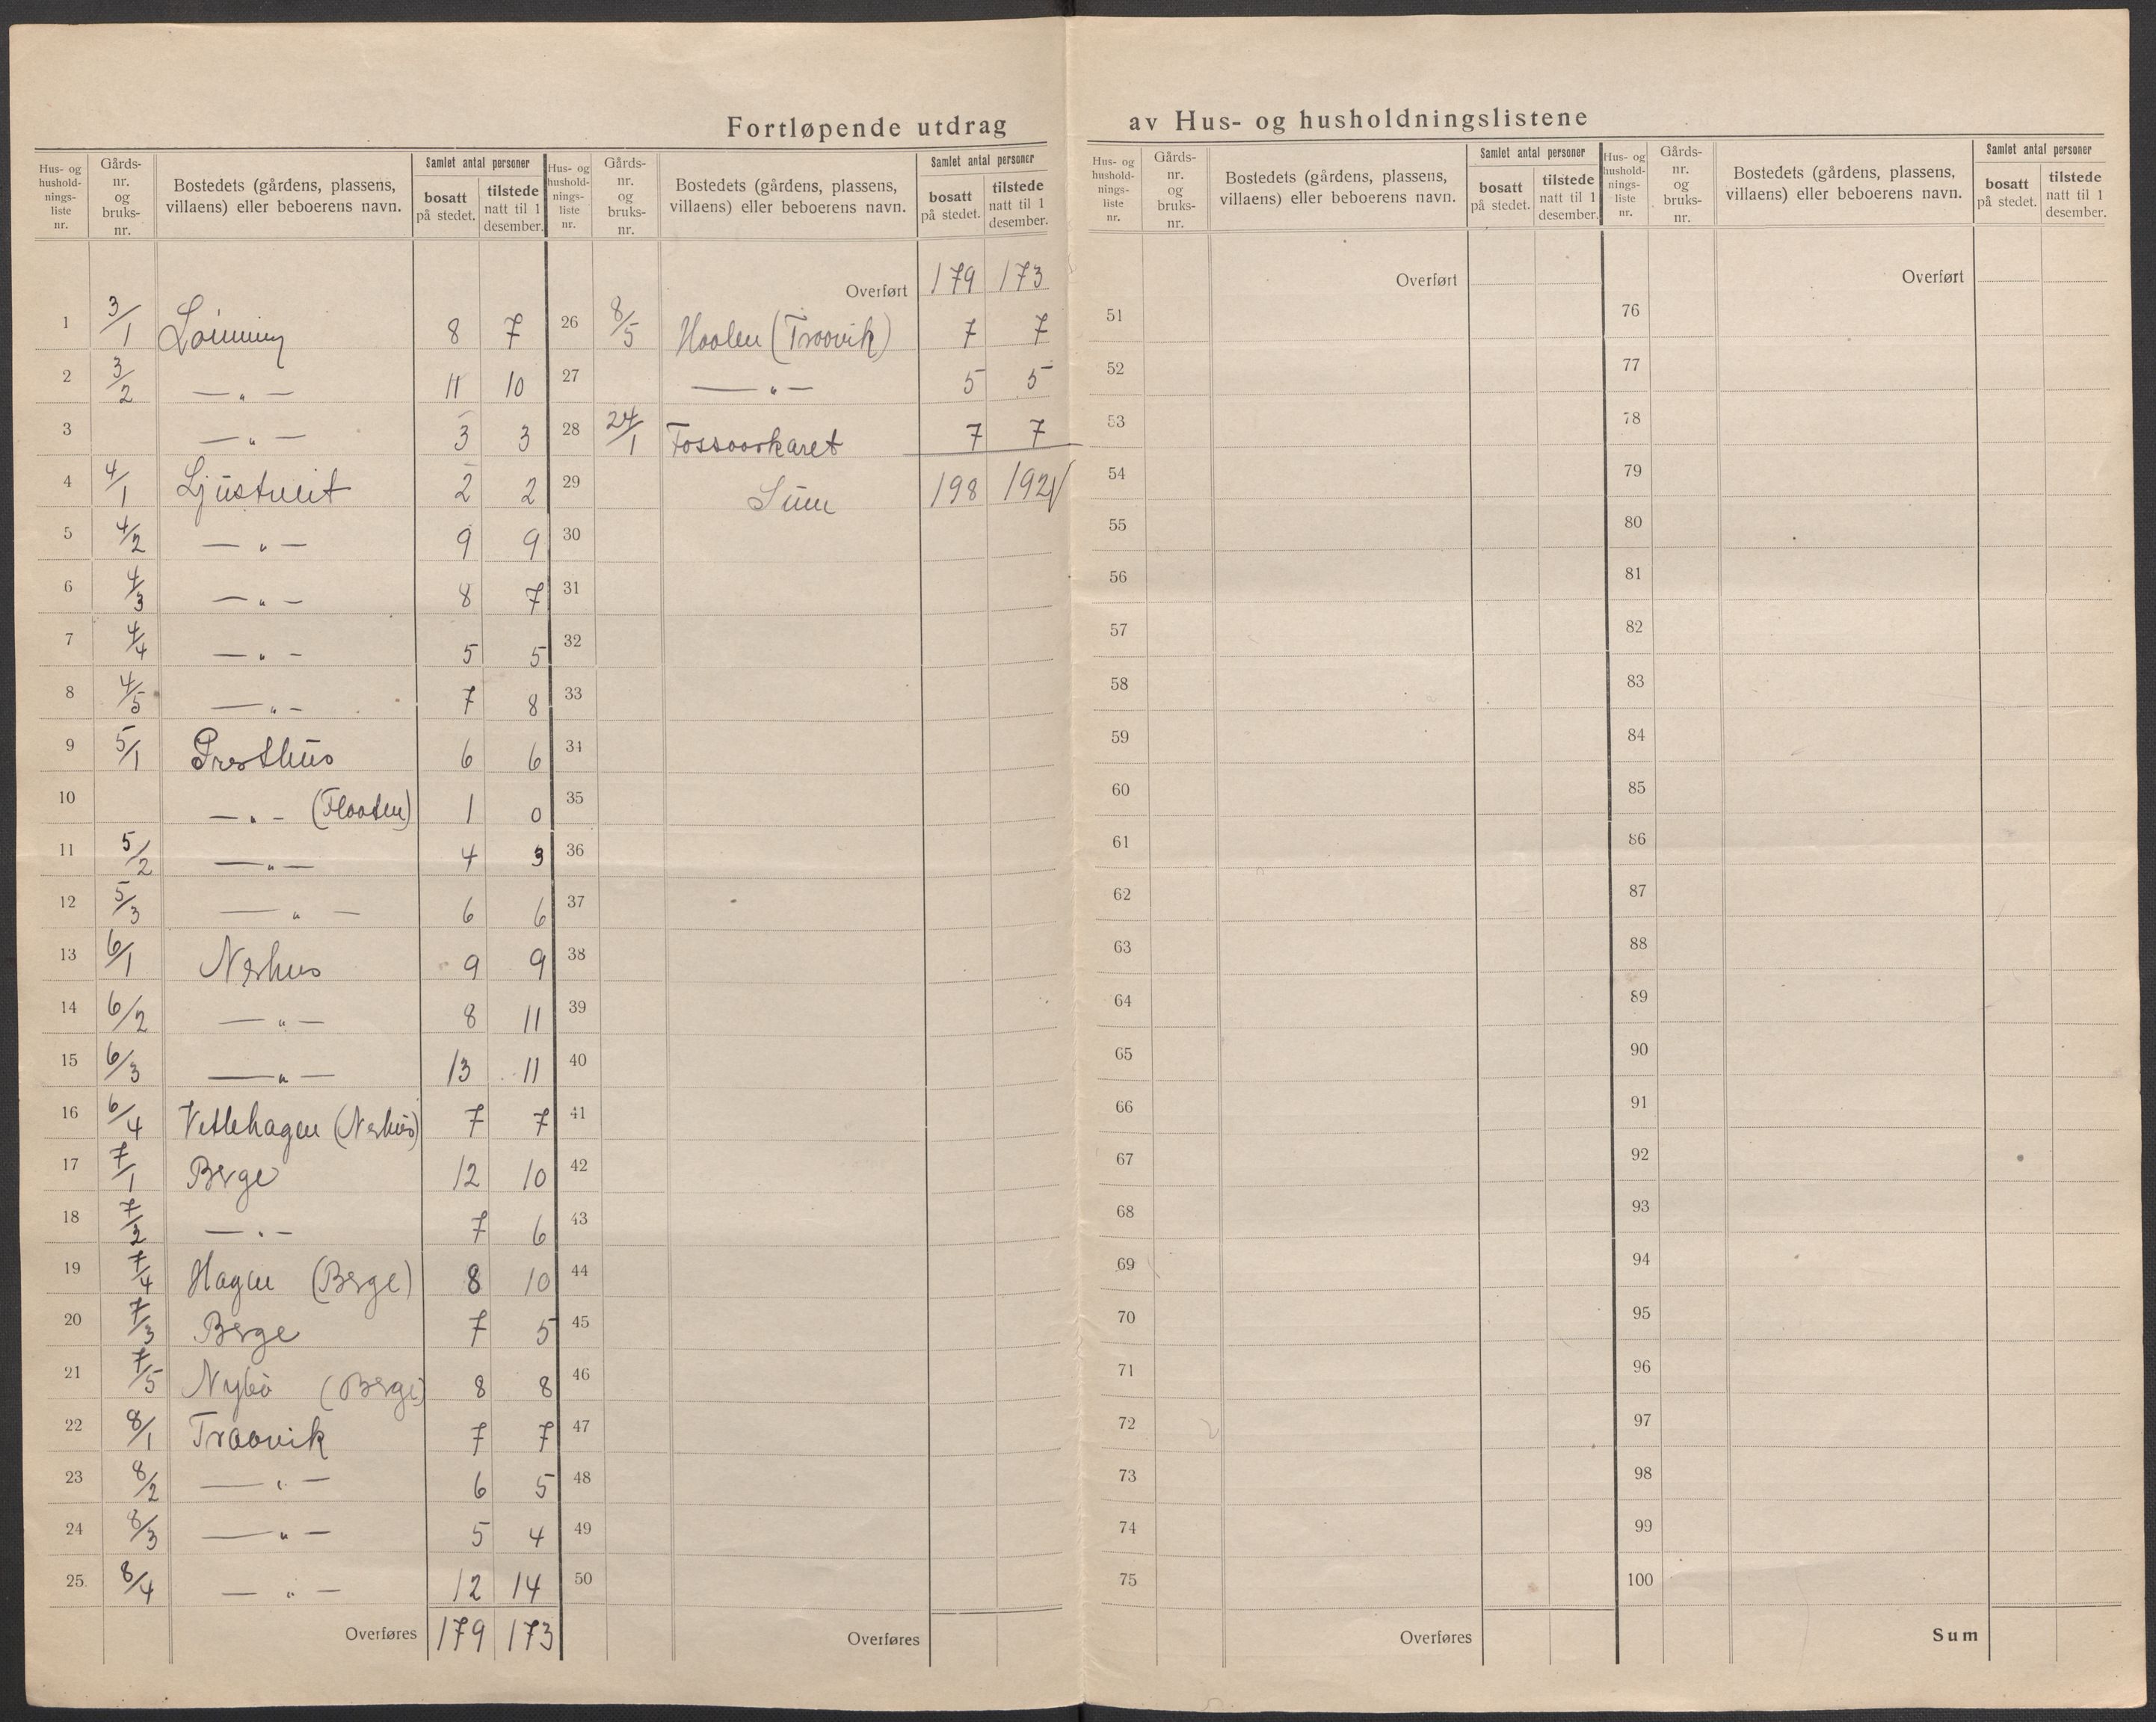 Fortløpende utdrag av Hus- og husholdningslistene
Hus- og hushold-nings-liste nr. Gårds-nr. og bruks-nr. Bostedets (gårdens, plassens, villaens) eller beboerens navn. Samlet antal personer bosatt på stedet. tilstede natt til 1 desember.
1 3/1 Lönning 8 7
2 3/2 —„— 11 10
3 —„— 3 3
4 4/1 Ljüstveit 2 2
5 4/2 —„— 9 9
6 4/3 —„— 8 7
7 4/4 —„— 5 5
8 4/5 —„— 7 8
9 5/1 Presthüs 6 6
10 —„— (Flaaten) 1 0
11 5/2 —„— 4 3
12 5/3 —„— 6 6
13 6/1 Nerhus 9 9
14 6/2 —„— 8 11
15 6/3 —„— 13 11
16 6/4 Vetlehagen (Nerhüs) 7 7
17 7/1 Berge 12 10
18 7/2 —„— 7 6
19 7/4 Hagen (Berge) 8 10
20 7/3 Berge 7 5
21 7/5 Nybö (Berge) 8 8
22 8/1 Traavik 7 7
23 8/2 —„— 6 5
24 8/3 —„— 5 4
25. 8/4 —„— 12 14
Overføres 179 173
Hus- og hushold-nings-liste nr. Gårds-nr. og bruks-nr. Bostedets (gårdens, plassens, villaens) eller beboerens navn. Samlet antal personer bosatt på stedet. tilstede natt til 1 desember.
Overført 179 173
26 8/5 Haalen (Traavik) 7 7
27 —„— 5 5
28 24/1 Fossaarkaret 7 7
29 Süm 198 192
30
31
32
33
34
35
36
37
38
39
40
41
42
43
44
45
46
47
48
49
50
Overføres
Hus- og hushold-nings-liste nr. Gårds-nr. og bruks-nr. Bostedets (gårdens, plassens, villaens) eller beboerens navn. Samlet antal personer bosatt på stedet. tilstede natt til 1 desember.
Overført
51
52
53
54
55
56
57
58
59
60
61
62
63
64
65
66
67
68
69
70
71
72
73
74
75
Overføres
Hus- og hushold-nings-liste nr. Gårds-nr. og bruks-nr. Bostedets (gårdens, plassens, villaens) eller beboerens navn. Samlet antal personer bosatt på stedet. tilstede natt til 1 desember.
Overført
76
77
78
79
80
81
82
83
84
85
86
87
88
89
90
91
92
93
94
95
96
97
98
99
100
Sum